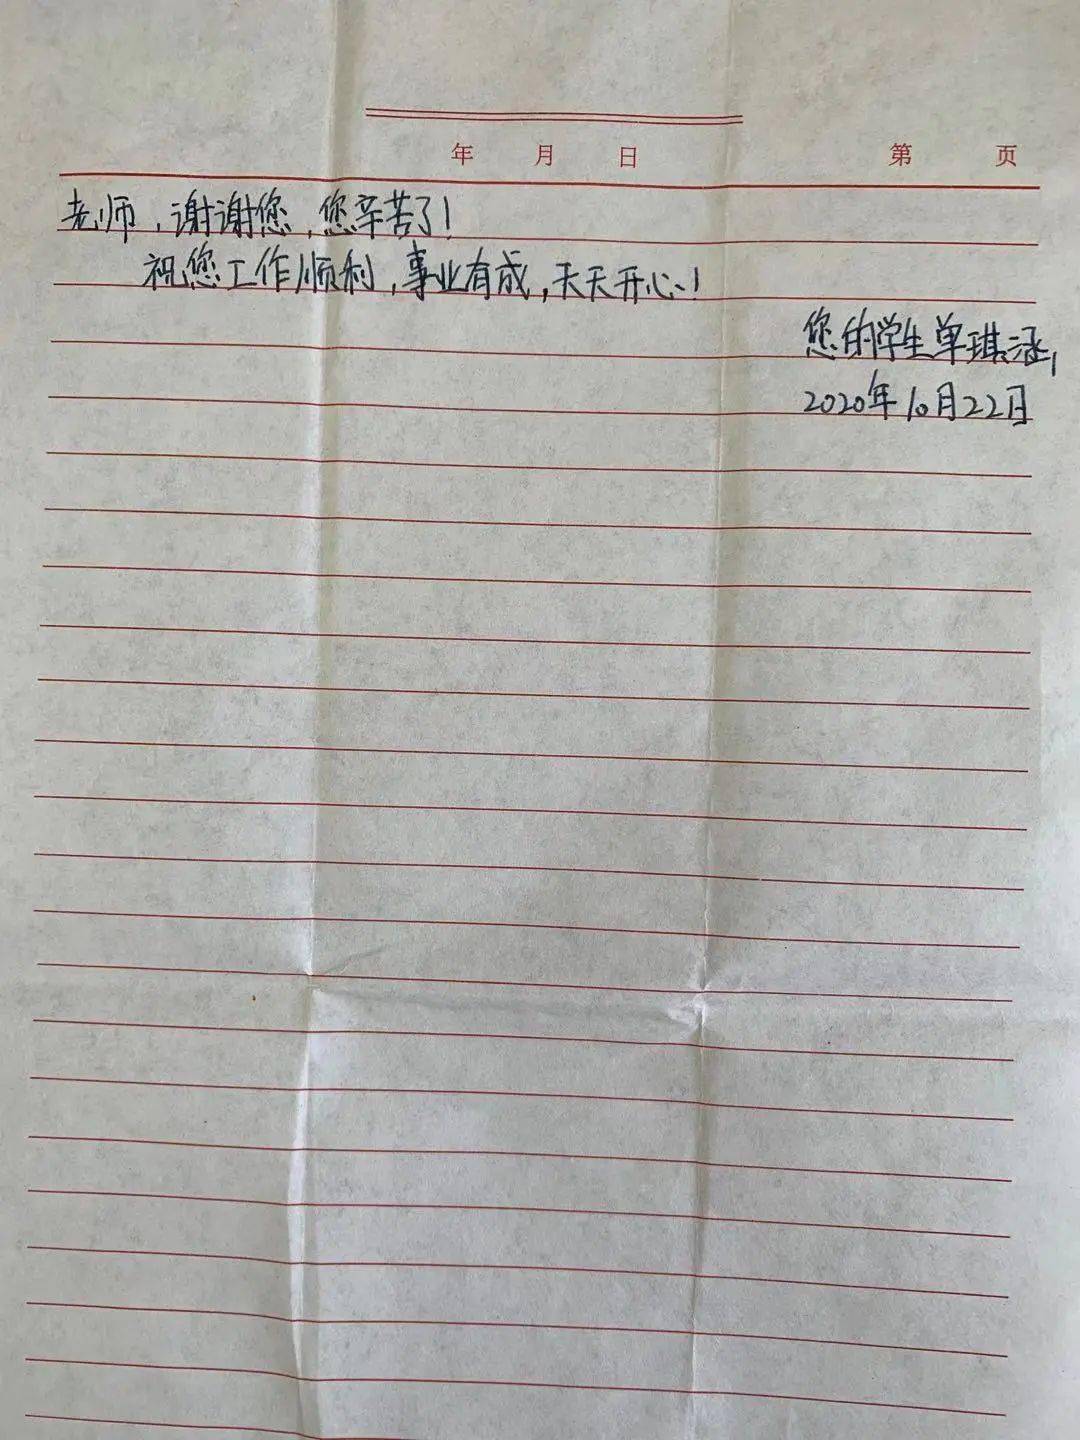 年 月 日 第 页
老师，谢谢您，您辛苦了！
祝您工作顺利，事业有成，天天开心！
您的学生单琪涵
2020年10月22日